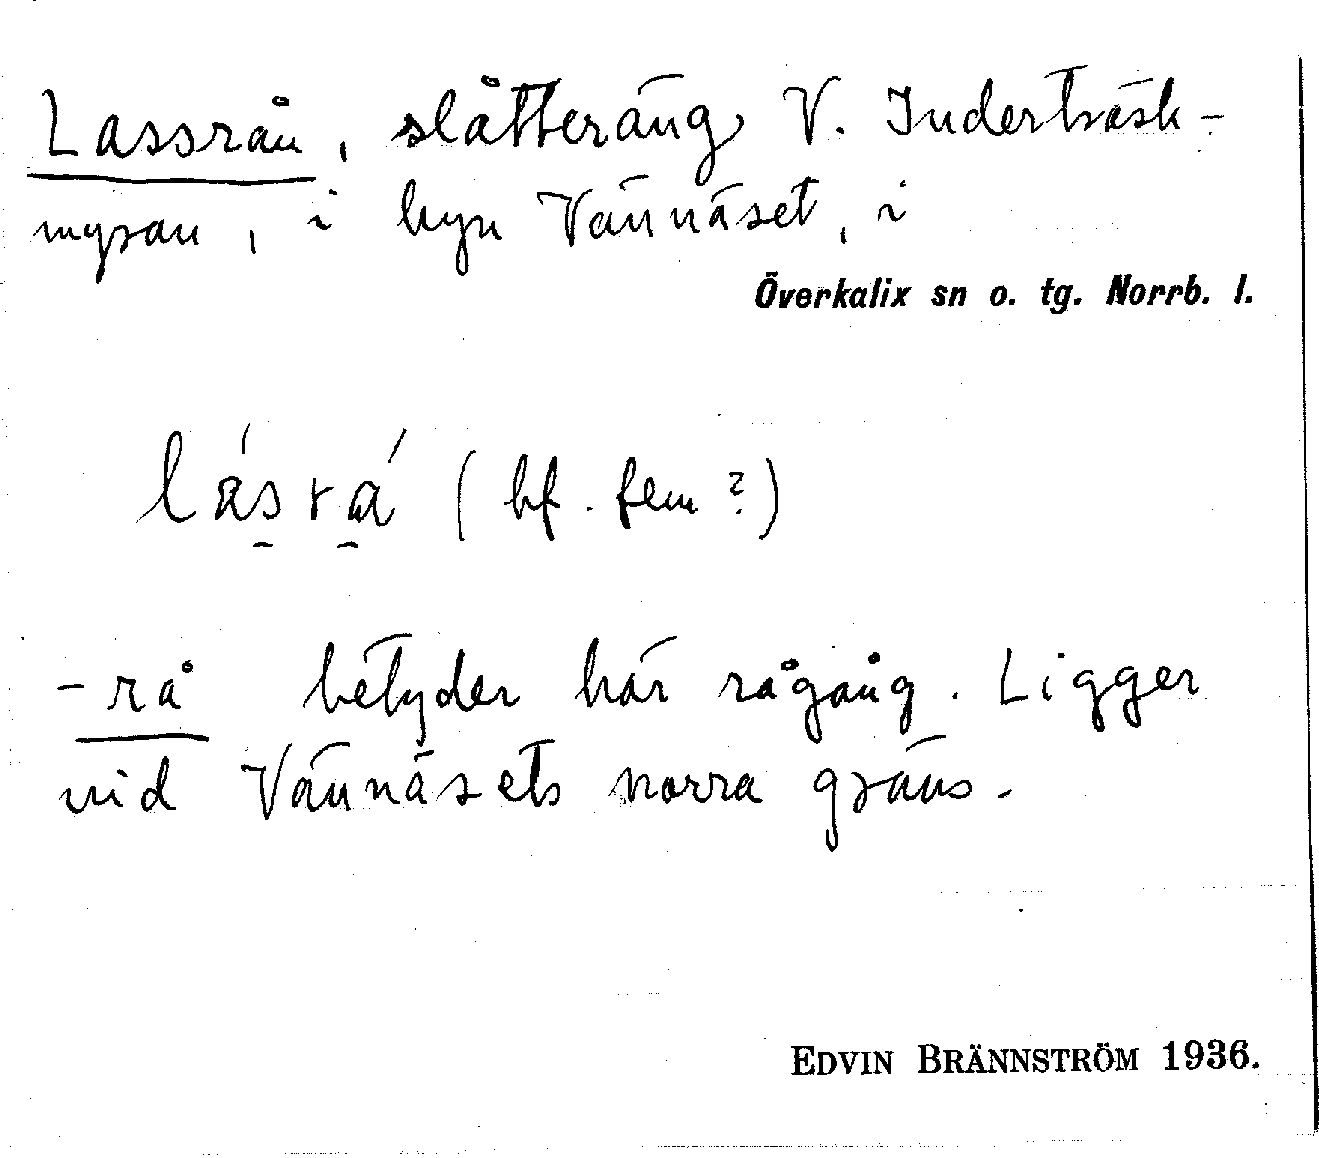 Lassrån, slåtteräng V. Inderträsk-
mysan, i byn Vännäset, i
Överkalix sn o. tg. Norrb. l.
lása̱rá̱ (bf. fem?)
-rå betyder här rågång. Ligger
vid Vännäsets norra gräns.
EDVIN BRÄNNSTRÖM 1936.